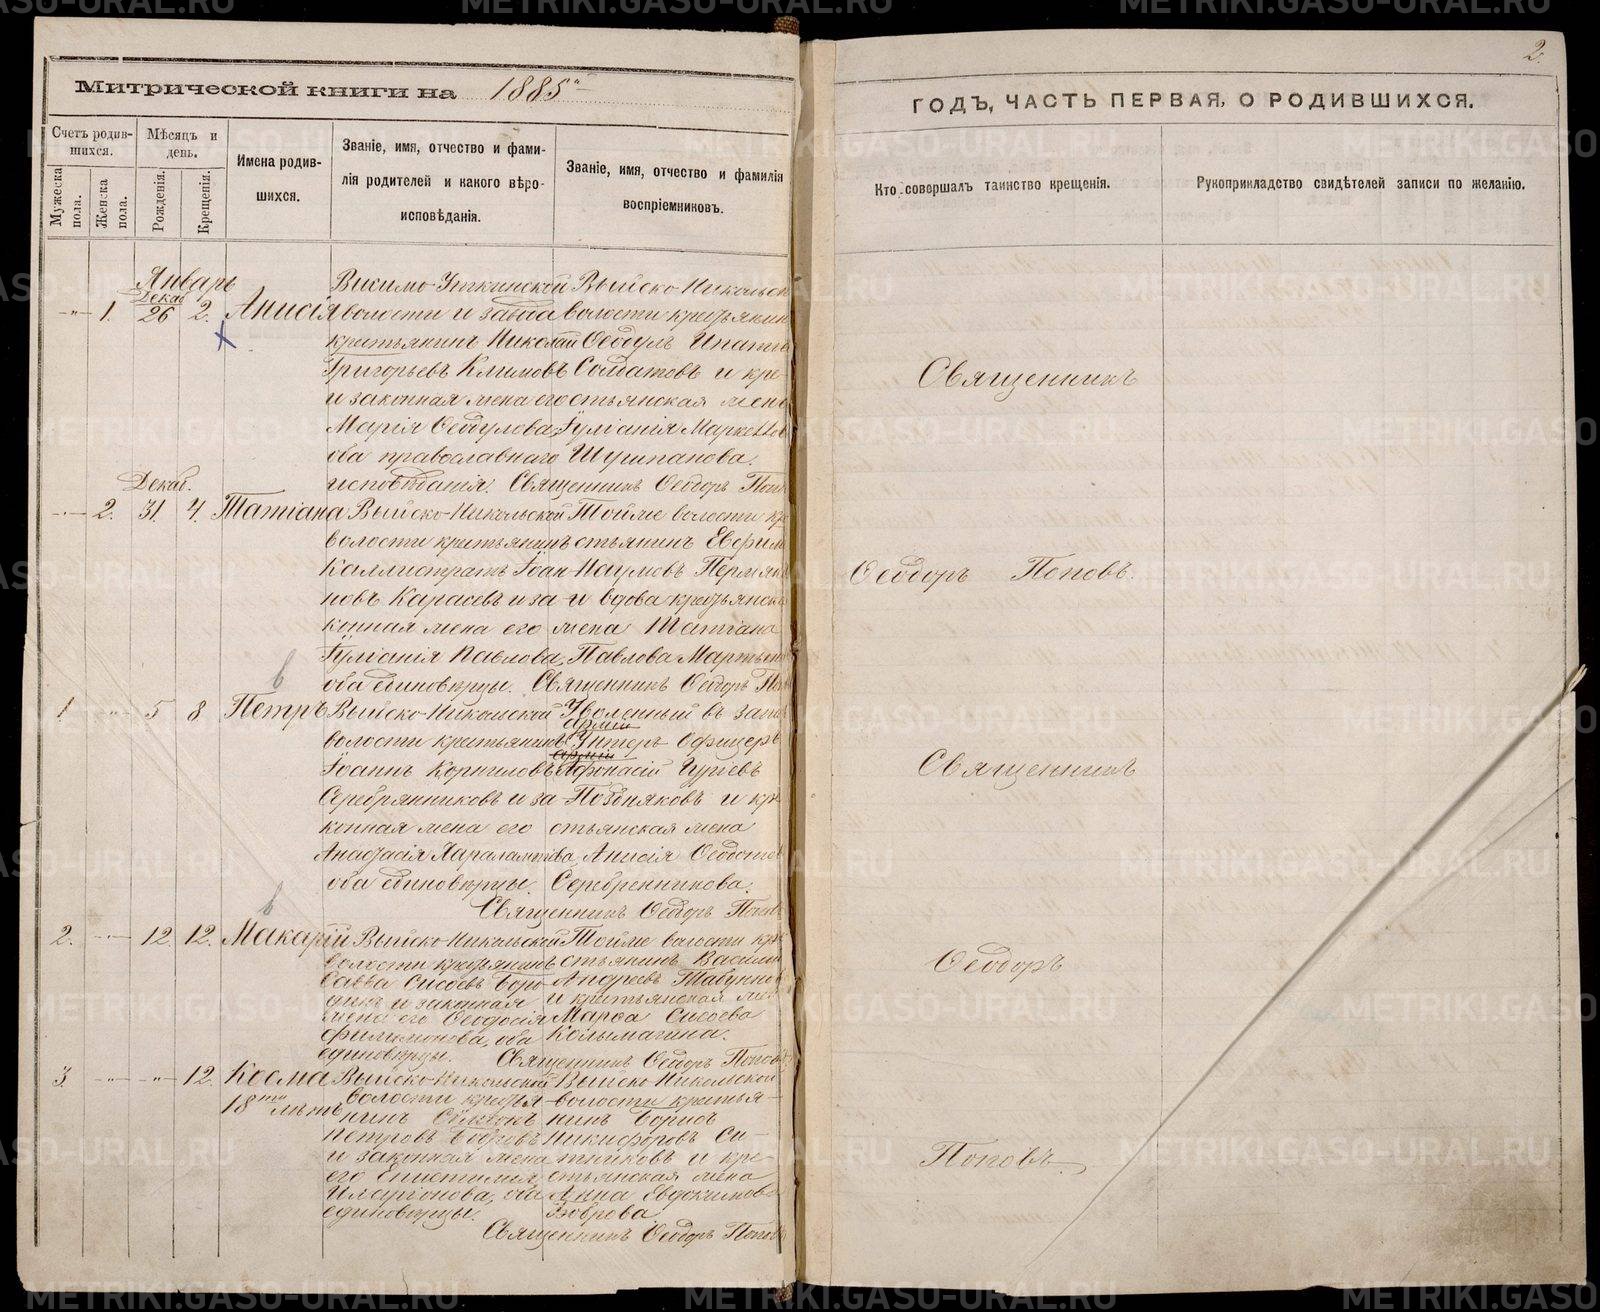 2.
Митрической книги на 1885й
ГОДЪ, ЧАСТЬ ПЕРВАЯ, О РОДИВШИХСЯ.
Счетъ родив-
шихся.
Мужеска
пола.
Женска
пола.
Мѣсяцъ и
день.
Рожденія.
Крещенія.
Имена родив-
шихся.
Званіе, имя, отчество и фами-
лія родителей и какого вѣро-
исповѣданія.
Званіе, имя, отчество и фамилія
воспріемниковъ.
Кто совершалъ таинство крещенія.
Рукоприкладство свидѣтелей записи по желанію.
Январь
Декаб
1. 26 2. Анисія
Висимо-Уткинской
волости и завода
крестьянинъ Николай
Григорьевъ Климовъ
и законная жена его
Марія Ѳеодулова,
оба православнаго
исповѣданія.
Выйско-Никольск
волости крестьянин
Ѳеодулъ Ипатов
Солдатовъ и кре-
стьянская жена
Іуліанія Маркелов
Шушпанова.
Священникъ Ѳеодоръ Попов
Декаб.
2. 31. 4. Татіана
Выйско-Никольской
волости крестьянинъ
Каллистратъ Іоан-
новъ Карасевъ и за-
конная жена его
Іуліанія Павлова,
оба единовѣрцы.
Тойме волости кр
стьянинъ Евфим
Наумовъ Пермяк
и вдова крестьянск
жена Татіана
Павлова Мартьян
Священникъ Ѳеодоръ Поп
1 5 8 Петръ
Выйско-Никольской
волости крестьянинъ
Іоаннъ Корниловъ
Серебрянниковъ и за-
конная жена его
Анастасія Харалампіева,
оба единовѣрцы.
Уволенный въ запас
арміи
Унтеръ-Офицеръ
арміи
Аѳонасій Гуріевъ
Поздняковъ и кре
стьянская жена
Анисія Ѳеодотов
Серебренникова.
Священникъ Ѳеодоръ Попов
2. 12. 12. Макарій
Выйско-Никольской
волости крестьянинъ
Савва Сысоевъ Боро-
динъ и законная
жена его Ѳеодосія
Филимонова, оба
единовѣрцы.
Тойме волости кре
стьянинъ Василій
Андреевъ Табунков
и крестьянская жен
Марѳа Сысоева
Колымагина.
Священникъ Ѳеодоръ Поповъ
3. 12. Косма
18ти лѣтъ
Выйско-Никольской
волости крестья-
нинъ Симеонъ
Петровъ Бобровъ
и законная жена
его Епистимія
Иларіонова, оба
единовѣрцы.
Выйско-Никольской
волости крестья-
нинъ Борисъ
Никифоровъ Си-
тниковъ и кре-
стьянская жена
Анна Евдокимова
Боброва
Священникъ Ѳеодоръ Попов
Священникъ
Ѳеодоръ Поповъ.
Священникъ
Ѳеодоръ
Поповъ.
METRIKI.GASO-URAL.RU